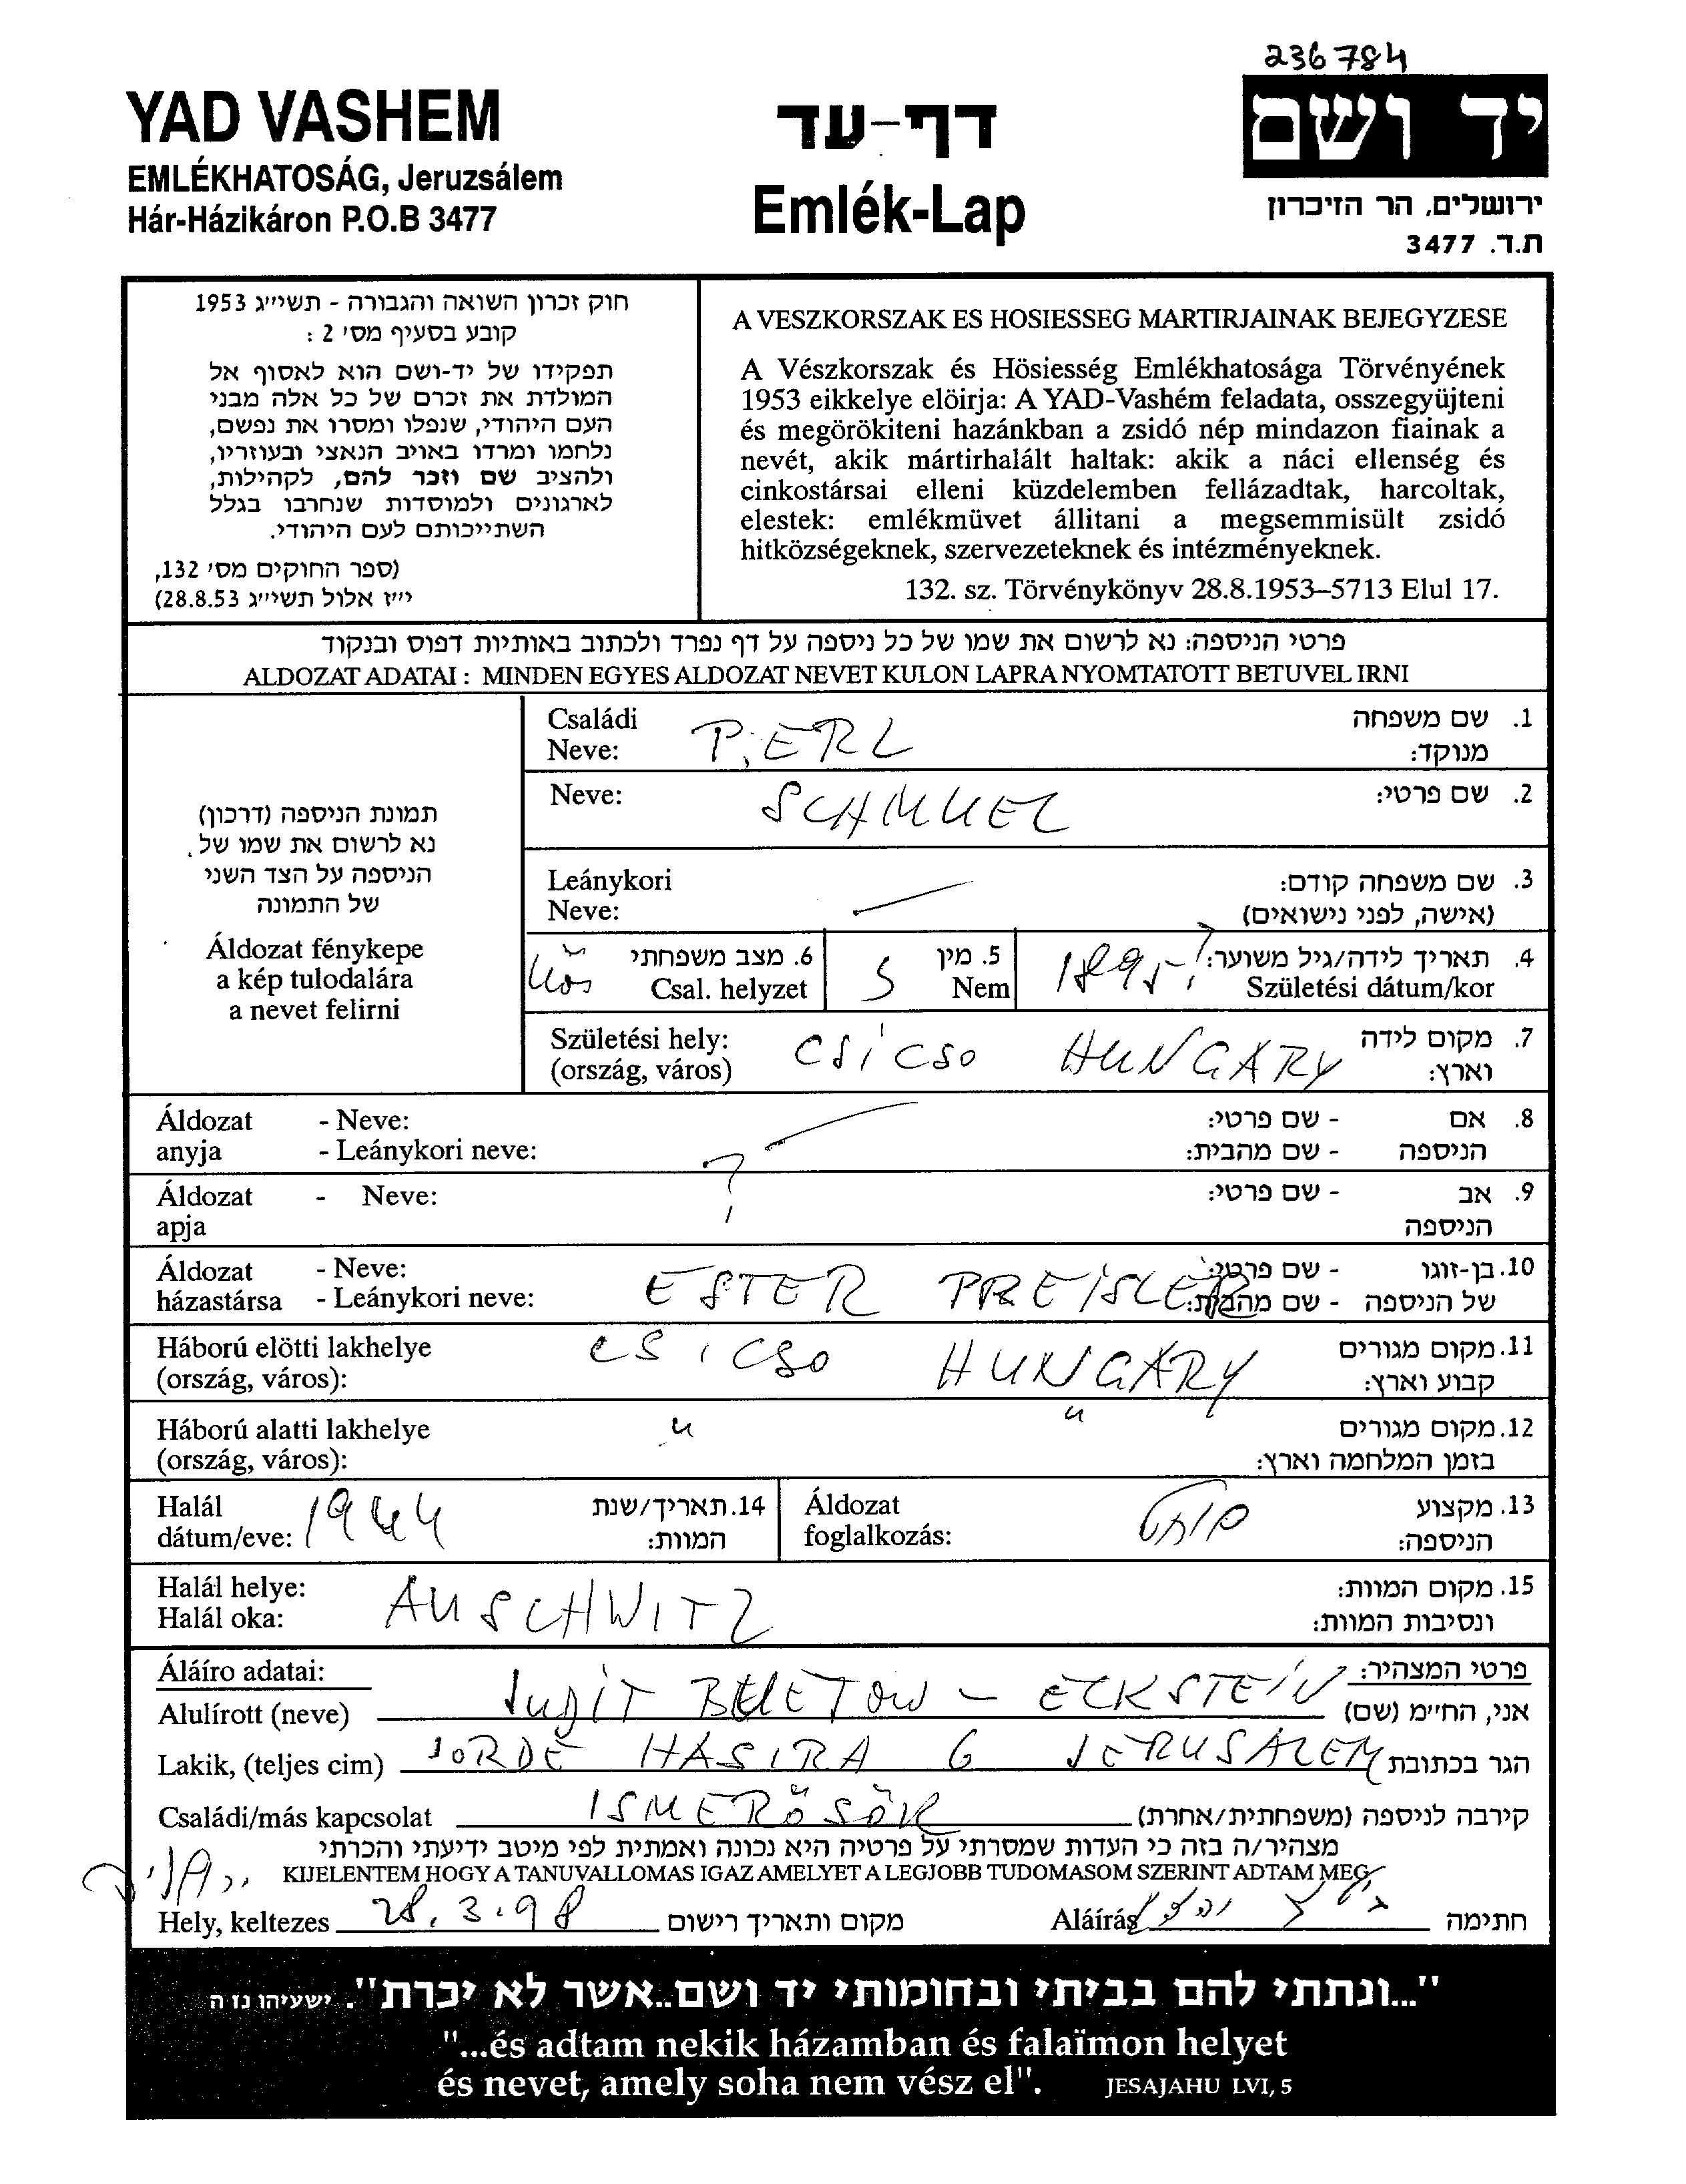 236784
YAD VASHEM
EMLÉKHATOSÁG, Jeruzsálem
Hár-Házikáron P.O.B 3477
דף-עד
Emlék-Lap
יד ושם
ירושלים, הר הזיכרון
ת.ד. 3477
חוק זכרון השואה והגבורה - תשי״ג 1953
קובע בסעיף מס׳ 2 :
תפקידו של יד-ושם הוא לאסוף אל
המולדת את זכרם של כל אלה מבני
העם היהודי, שנפלו ומסרו את נפשם,
נלחמו ומרדו באויב הנאצי ובעוזריו,
ולהציב שם וזכר להם, לקהילות,
לארגונים ולמוסדות שנחרבו בגלל
השתייכותם לעם היהודי.
(ספר החוקים מס׳ 132,
י״ז אלול תשי״ג 28.8.53)
A VESZKORSZAK ES HOSIESSEG MARTIRJAINAK BEJEGYZESE
A Vészkorszak és Hösiesség Emlékhatosága Törvényének
1953 eikkelye elöirja: A YAD-Vashém feladata, osszegyüjteni
és megörökiteni hazánkban a zsidó nép mindazon fiainak a
nevét, akik mártirhalált haltak: akik a náci ellenség és
cinkostársai elleni küzdelemben fellázadtak, harcoltak,
elestek: emlékmüvet állitani a megsemmisült zsidó
hitközségeknek, szervezeteknek és intézményeknek.
132. sz. Törvénykönyv 28.8.1953–5713 Elul 17.
פרטי הניספה: נא לרשום את שמו של כל ניספה על דף נפרד ולכתוב באותיות דפוס ובנקוד
ALDOZAT ADATAI : MINDEN EGYES ALDOZAT NEVET KULON LAPRA NYOMTATOTT BETUVEL IRNI
תמונת הניספה (דרכון)
נא לרשום את שמו של
הניספה על הצד השני
של התמונה
Áldozat fénykepe
a kép tulodalára
a nevet felirni
Családi PERL 1. שם משפחה
Neve: מנוקד:
Neve: SCHMUEL 2. שם פרטי:
Leánykori 3. שם משפחה קודם:
Neve: (אישה, לפני נישואים)
6. מצב משפחתי 5. מין 4. תאריך לידה/גיל משוער:
Nős Csal. helyzet Nem 1895? Születési dátum/kor
Születési hely: CSICSO HUNGARY 7. מקום לידה
(ország, város) וארץ:
Áldozat - Neve: - שם פרטי: 8. אם
anyja - Leánykori neve: - שם מהבית: הניספה
?
Áldozat - Neve: - שם פרטי: 9. אב
apja הניספה
Áldozat - Neve: - שם פרטי: 10. בן-זוגו
házastársa - Leánykori neve: ESTER PREISLER - שם מהבית: של הניספה
Háború elötti lakhelye CSICSO HUNGARY 11. מקום מגורים
(ország, város): קבוע וארץ:
Háború alatti lakhelye " " 12. מקום מגורים
(ország, város): בזמן המלחמה וארץ:
Halál 1944 14. תאריך/שנת Áldozat 13. מקצוע
dátum/eve: המוות: foglalkozás: הניספה:
Halál helye: AUSCHWITZ 15. מקום המוות:
Halál oka: ונסיבות המוות:
Áláíro adatai: פרטי המצהיר:
Alulírott (neve) JUDIT BELETOW - ECKSTEIN אני, הח״מ (שם)
Lakik, (teljes cim) JORDE HASIRA 6 JERUSALEM הגר בכתובת
Családi/más kapcsolat ISMERŐSÖK קירבה לניספה (משפחתית/אחרת)
מצהיר/ה בזה כי העדות שמסרתי על פרטיה היא נכונה ואמתית לפי מיטב ידיעתי והכרתי
KIJELENTEM HOGY A TANUVALLOMAS IGAZ AMELYET A LEGJOBB TUDOMASOM SZERINT ADTAM MEG
Hely, keltezes 28.3.98 מקום ותאריך רישום Aláírás חתימה
"...ונתתי להם בביתי ובחומותי יד ושם..אשר לא יכרת". ישעיהו נז ה
"...és adtam nekik házamban és falaïmon helyet
és nevet, amely soha nem vész el". JESAJAHU LVI, 5